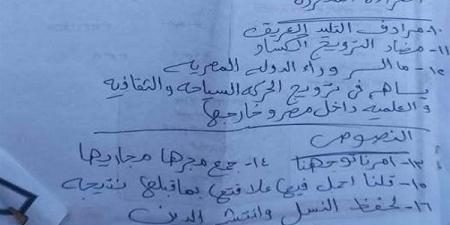 ١٠- مرادف التليد العريق
١١- مضاد الترويج الكساد
١٢- ما السر وراء الدولة المصرية
يساهم في ترويج الحركة السياحة والثقافية
والعلمية داخل مصر وخارجها
النصوص
١٣- امرنا توجهنا ١٤- جمع مجرها مجاريها
١٥- قلنا احمل فيها علاقتها بماقبلها نتيجة
١٦- لحفظ النسل وانتشر الدين